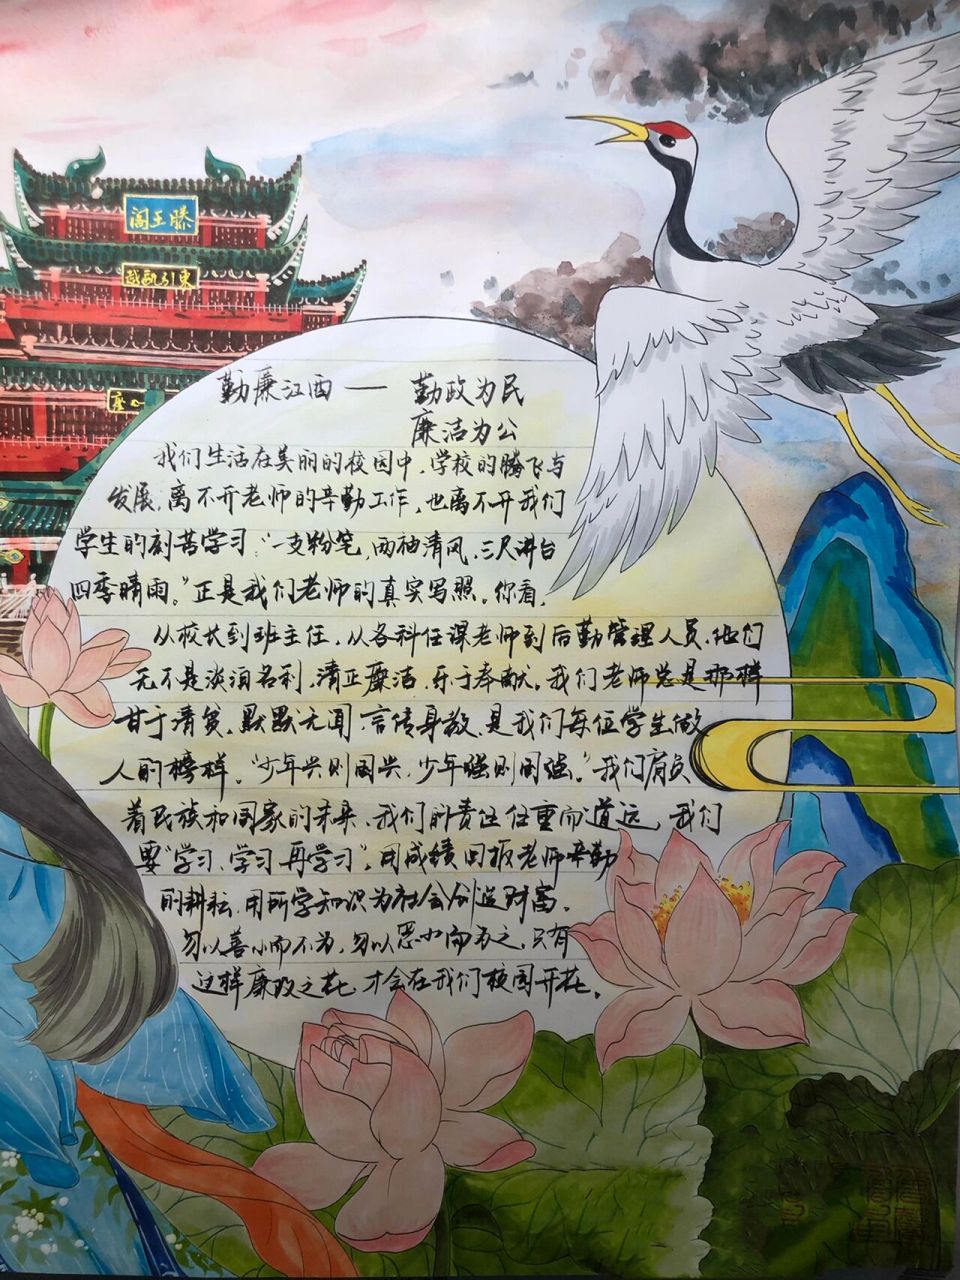 滕王阁
東引甌越
勤廉江西 — 勤政为民
廉洁为公
我们生活在美丽的校园中，学校的腾飞与
发展，离不开老师的辛勤工作，也离不开我们
学生的刻苦学习。“一支粉笔，两袖清风，三尺讲台
四季晴雨。”正是我们老师的真实写照。你看，
从校长到班主任，从各科任课老师到后勤管理人员，他们
无不是淡泊名利，清正廉洁，乐于奉献。我们老师总是那样
甘于清贫，默默无闻，言传身教，是我们每位学生做
人的榜样。“少年兴则国兴，少年强则国强。”我们肩负
着民族和国家的未来，我们的责任任重而道远，我们
要“学习、学习再学习”，用成绩回报老师辛勤
的耕耘，用所学知识为社会创造财富，
勿以善小而不为，勿以恶小而为之，只有
这样廉政之花，才会在我们校园开花。